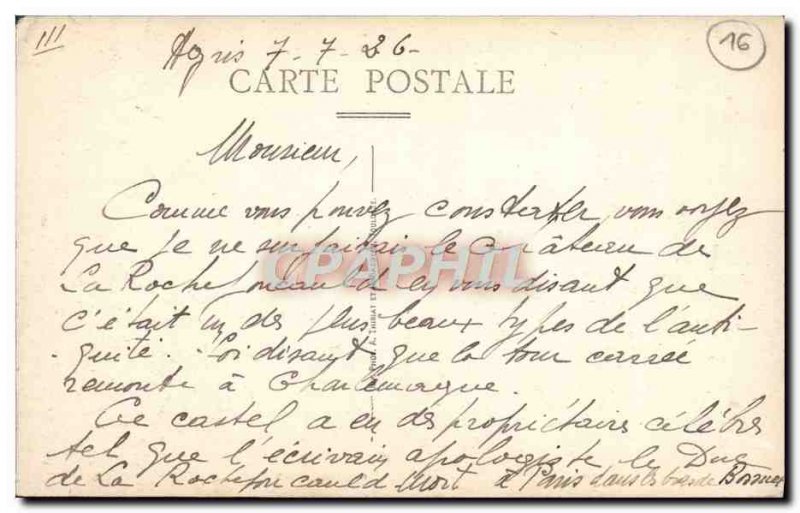 III
16
Agris 7-7-26-
CARTE POSTALE
Monsieur,
Comme vous pouvez constater, vous voyez
que je ne le château de
La Rochefoucauld en vous disant que
c'était un des plus beaux types de l'anti-
quité. Soi disant que la tour carrée
remonte à Charlemagne.
Ce castel a eu des propriétaires célèbres
tel que l'écrivain apologiste le Duc
de La Rochefoucauld mort à Paris dans les bras de Bossuet
CPAPHIL